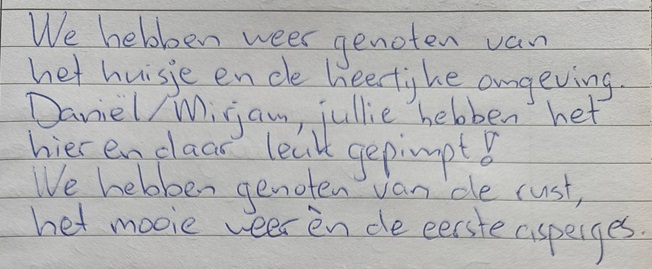 We hebben weer genoten van
het huisje en de heerlijke omgeving.
Daniël/Mirjam, jullie hebben het
hier en daar leuk gepimpt!
We hebben genoten van de rust,
het mooie weer èn de eerste asperges.